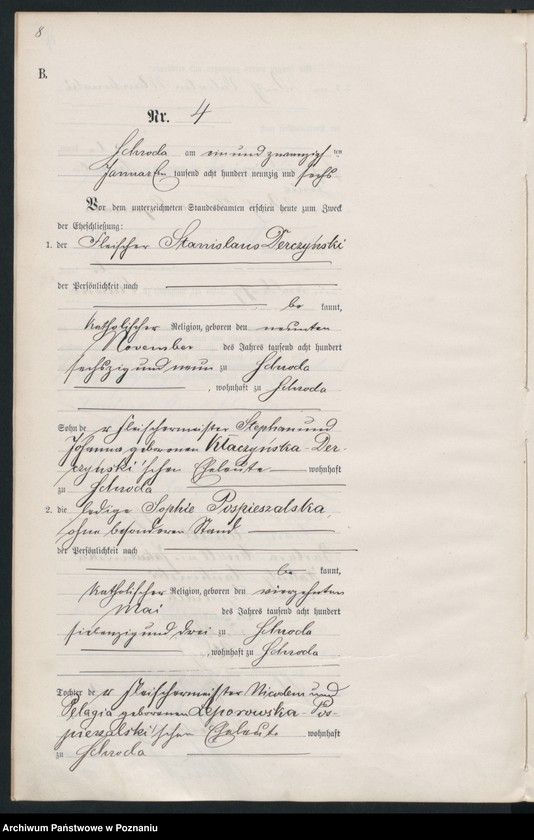 8
B.
Nr. 4
Schroda am ein und zwanzigsten
Januar tausend acht hundert neunzig und sechs
Vor dem unterzeichneten Standesbeamten erschien heute zum Zweck
der Eheschließung:
1. der Fleischer Stanislaus Derczyński
der Persönlichkeit nach
be kannt,
katholischer Religion, geboren den neunten
November des Jahres tausend acht hundert
sechszig und neun zu Schroda
, wohnhaft zu Schroda
Sohn der Fleischermeister Stephan und
Johanna geborenen Kłaczyńska - Der-
czyński'schen Eheleute wohnhaft
zu Schroda
2. die ledige Sophie Pospieszalska,
ohne besonderen Stand
der Persönlichkeit nach
be kannt,
katholischer Religion, geboren den vierzehnten
Mai des Jahres tausend acht hundert
siebenzig und drei zu Schroda
, wohnhaft zu Schroda
Tochter der Fleischermeister Nicodem und
Pelagia geborenen Leporowska - Pos-
pieszalski'schen Eheleute wohnhaft
zu Schroda
Archiwum Państwowe w Poznaniu